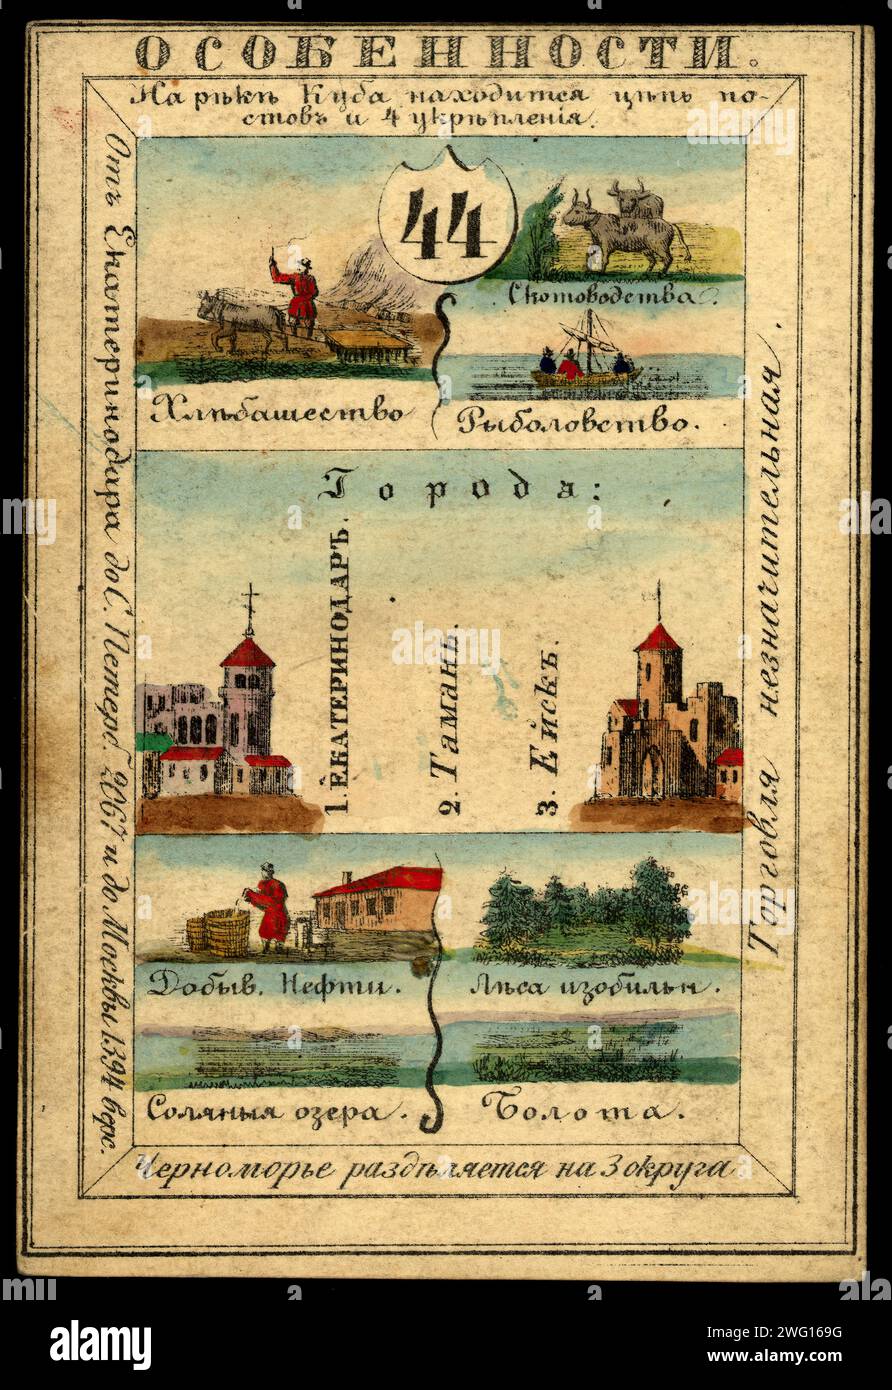 ОСОБЕННОСТИ.
На рѣкѣ Куба находится цѣпь по-
стовъ и 4 укрѣпленія.
44
Скотоводства.
Хлѣбашество
Рыболовство.
Города:
1. ЕКАТЕРИНОДАРЪ.
2. Тамань.
3. Ейскъ.
Добыв. Нефти.
Лѣса изобильн.
Соляныя озера.
Болота.
Черноморье раздѣляется на 3 округа
Отъ Екатеринодара до С. Петерб. 2067 и до Москвы 1394 верс.
Торговля незначительная.
alamy
Image ID: 2WG169G
www.alamy.com